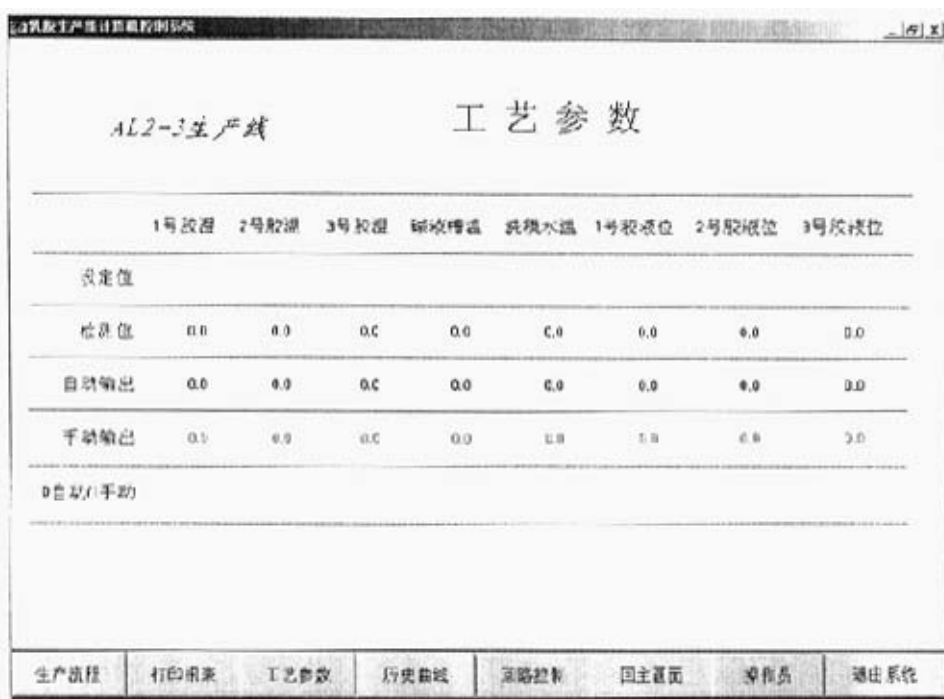 乳胶生产线计算机控制系统
AL2-3生产线
工艺参数
1号胶温 2号胶温 3号胶温 碱液槽温 洗模水温 1号胶液位 2号胶液位 3号胶液位
设定值
检测值 0.0 0.0 0.0 0.0 0.0 0.0 0.0 0.0
自动输出 0.0 0.0 0.0 0.0 0.0 0.0 0.0 0.0
手动输出 0.0 0.0 0.0 0.0 0.0 0.0 0.0 0.0
0自动/1手动
生产流程 打印报表 工艺参数 历史曲线 回路控制 回主画面 操作员 退出系统